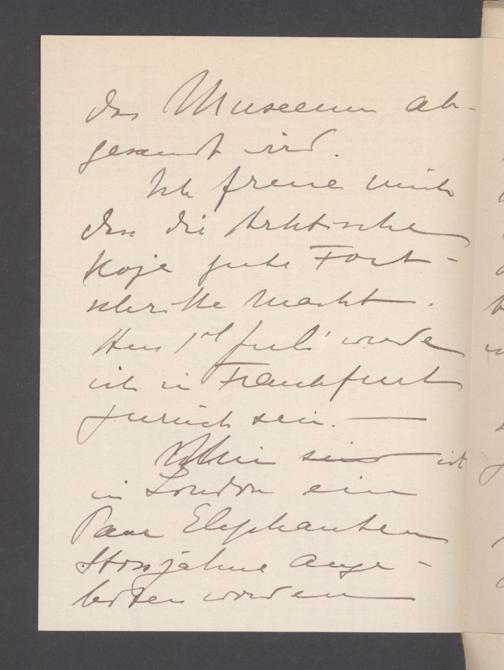 das Museeum ab-
gesandt wird.
Ich freue mich
das die Arktische
Koje gute Fort-
schritte macht.
1ten Juli werde
ich in Frankfurt
zurück sein. —
ist
in London ein
Paar Elephanten
Stosszähne ange-
boten worden